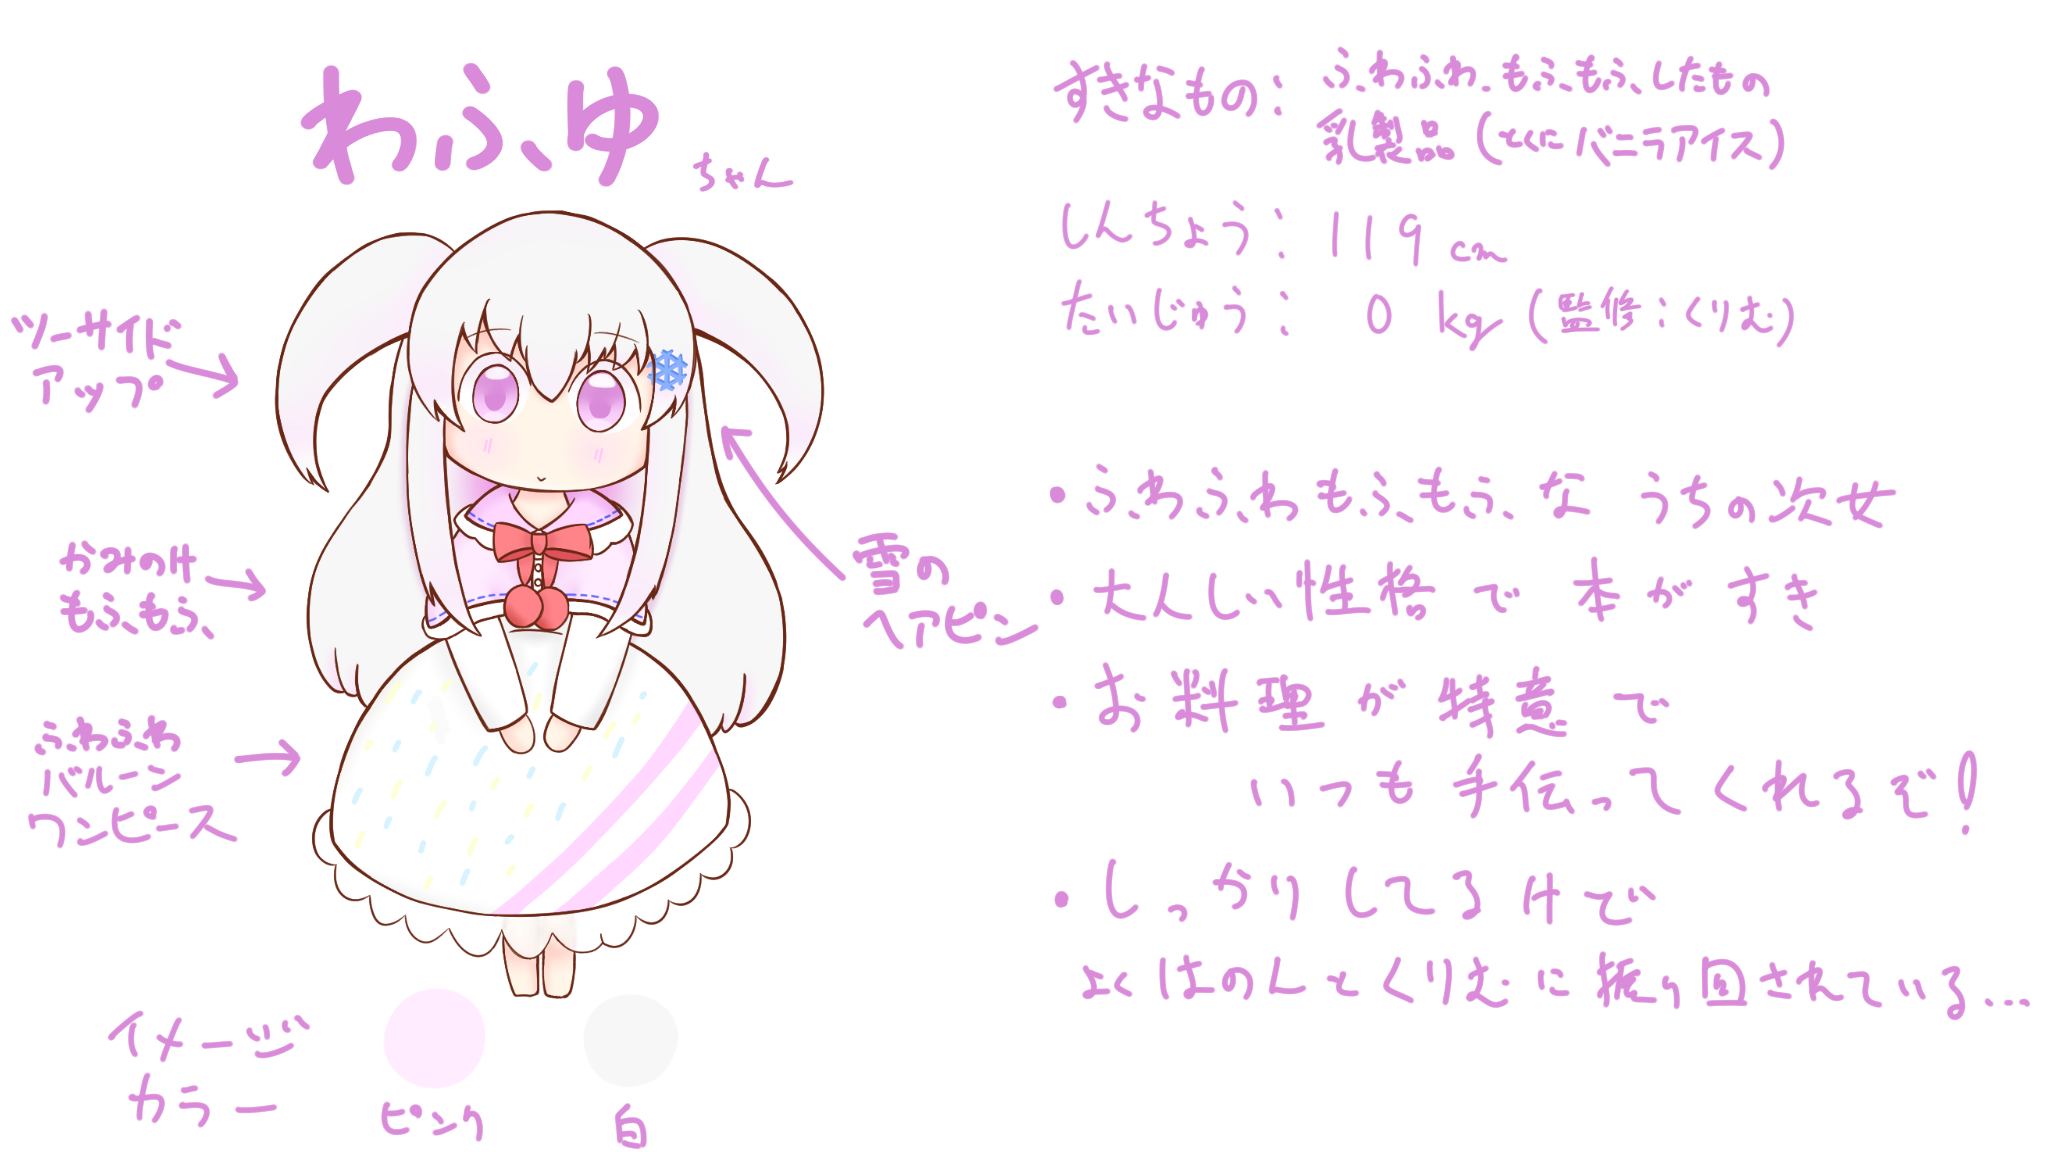 わふゆ
ちゃん
ツーサイド
アップ
かみのけ
もふもふ
ふわふわ
バルーン
ワンピース
雪の
ヘアピン
イメージ
カラー
ピンク
白
すきなもの：ふわふわ・もふもふしたもの
乳製品（とくにバニラアイス）
しんちょう：119cm
たいじゅう：0kg（監修：くりむ）
・ふわふわもふもふな うちの次女
・大人しい性格で本がすき
・お料理が特意で
いつも手伝ってくれるぞ！
・しっかりしてるけで
よくはのんとくりむに振り回されている…